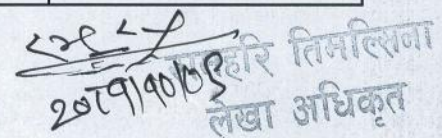 २०८१।१०।०९
हरि तिमल्सिना
लेखा अधिकृत